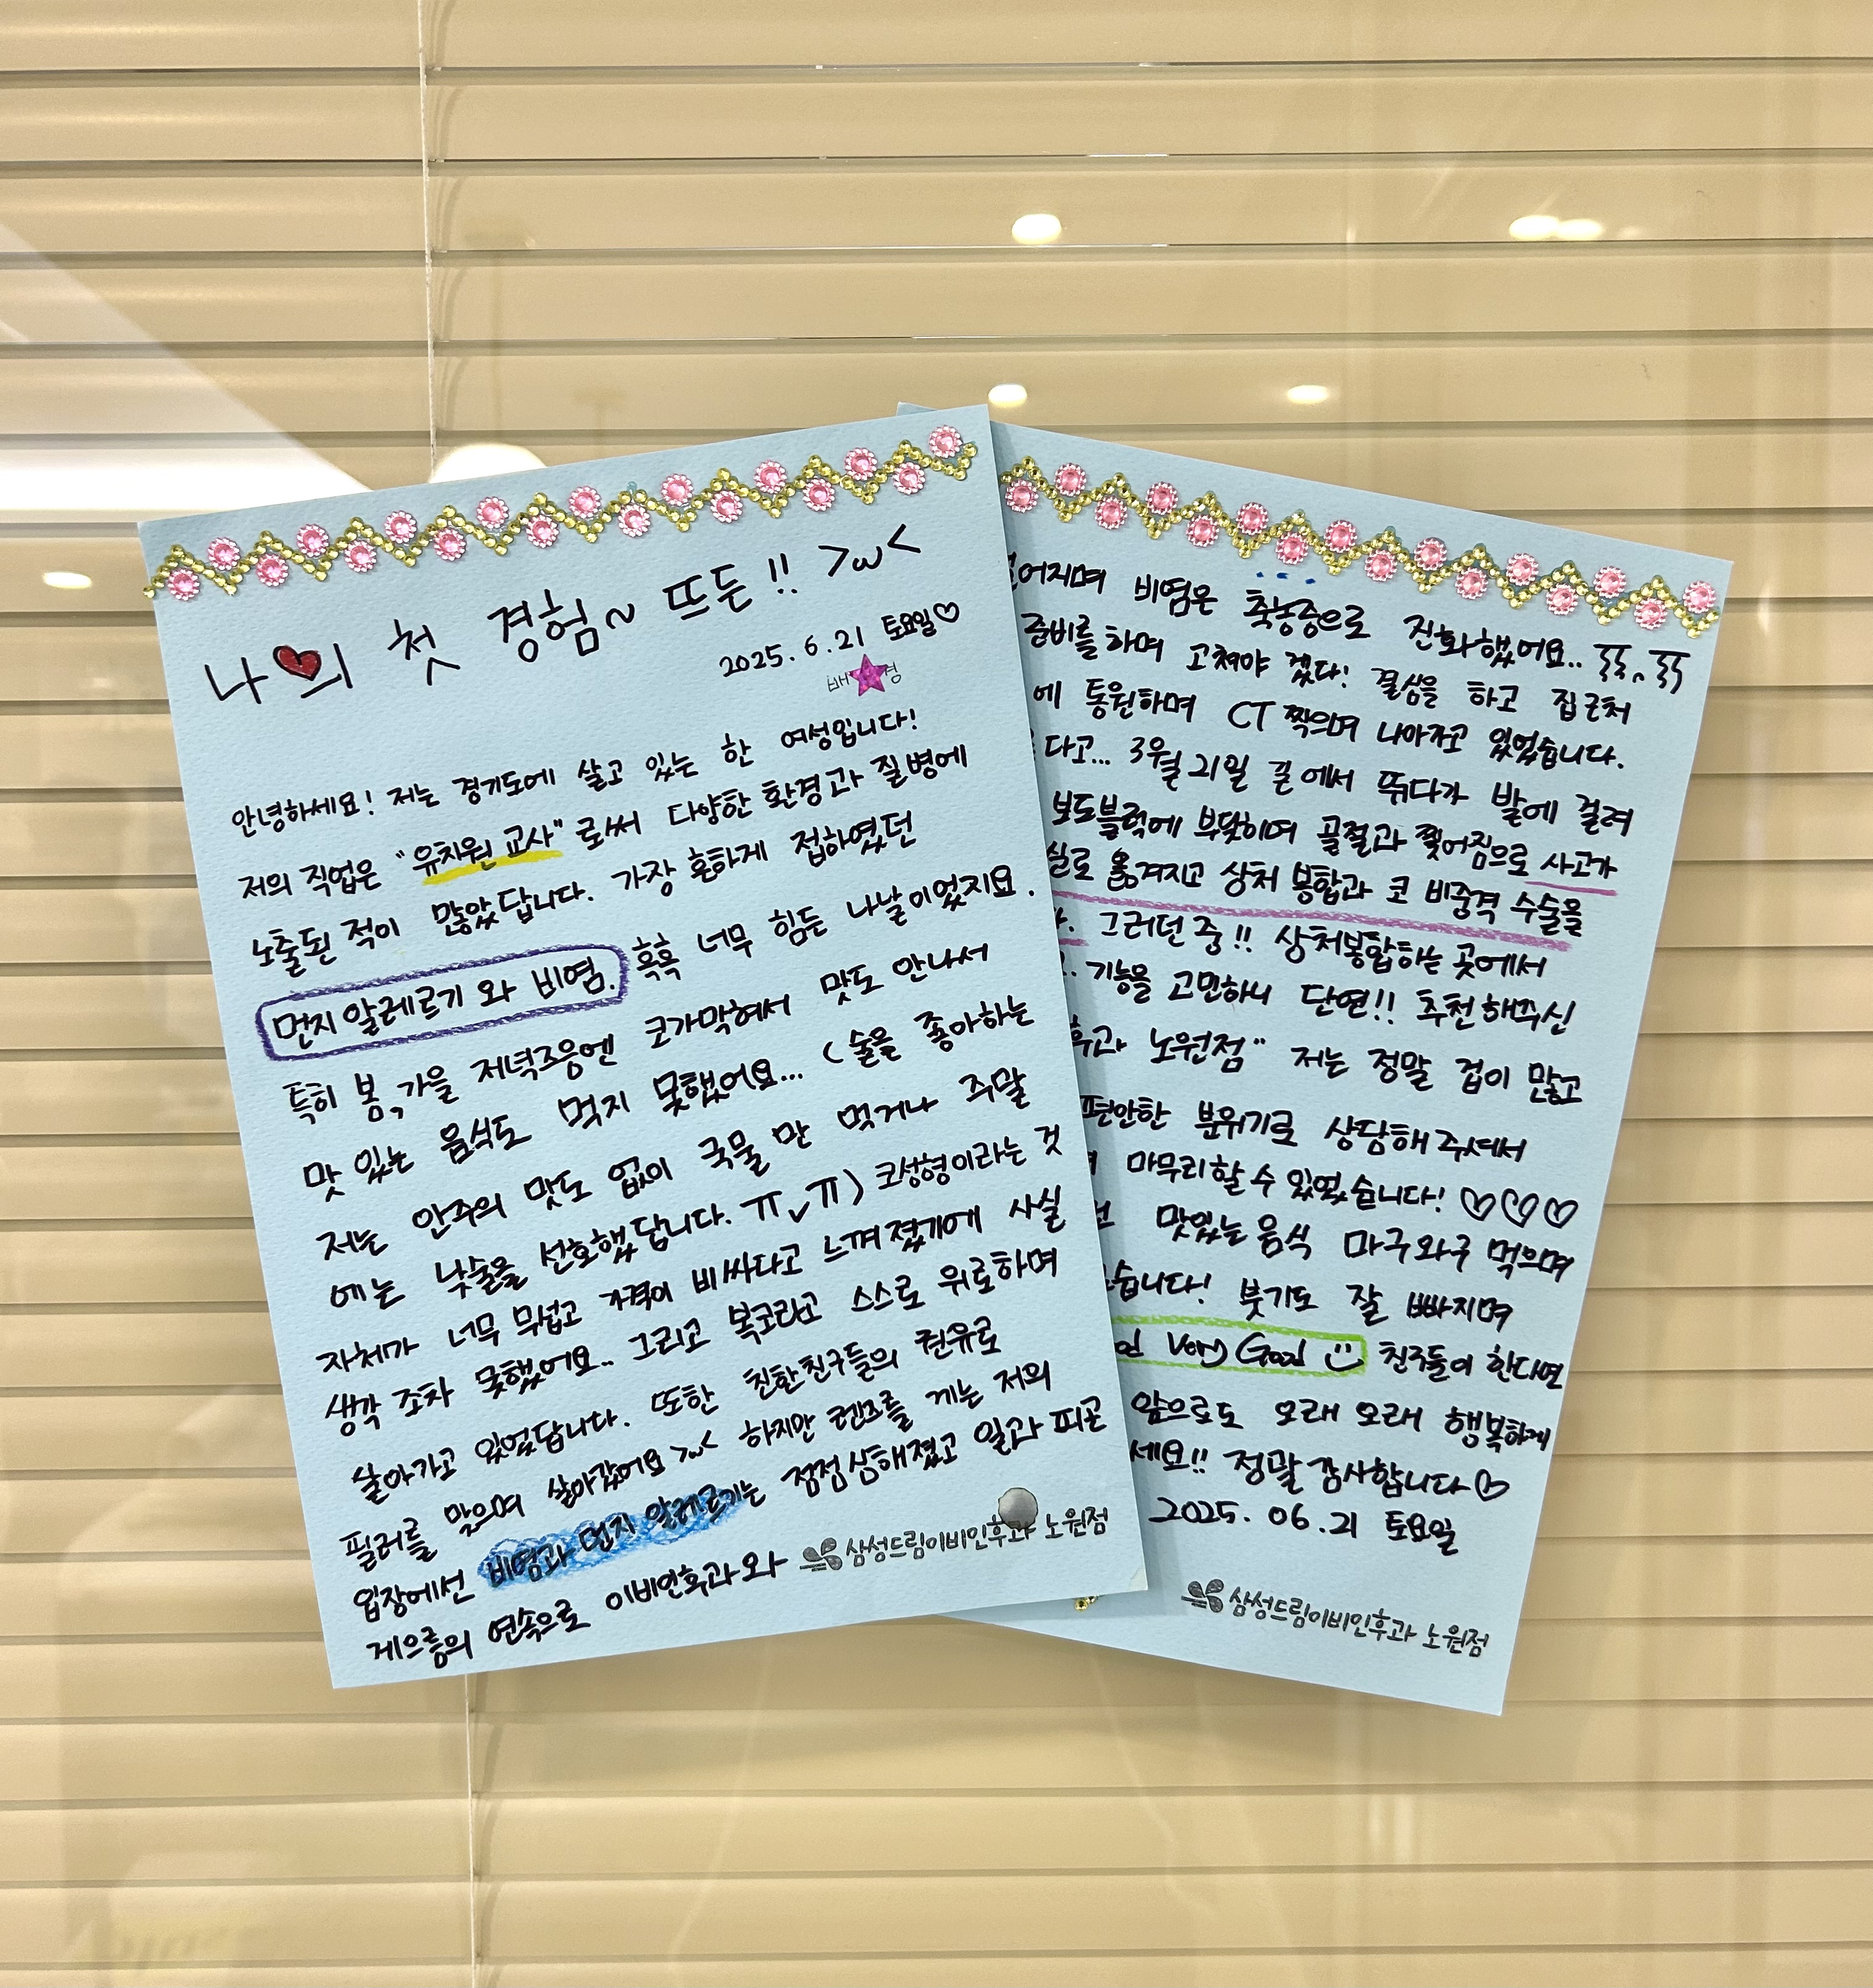 나의 첫 경험~ 뜨든!! >ω<
2025. 6. 21 토요일♡
배 경
안녕하세요! 저는 경기도에 살고 있는 한 여성입니다!
저의 직업은 "유치원 교사"로써 다양한 환경과 질병에
노출된 적이 많았답니다. 가장 흔하게 접하였던
먼지 알레르기 와 비염. 흑흑 너무 힘든 나날이었지요.
특히 봄, 가을 저녁즈음엔 코가막혀서 맛도 안나서
맛 있는 음식도 먹지 못했어요... (술을 좋아하는
저는 안주의 맛도 없이 국물 만 먹거나 주말
에는 낮술을 선호했답니다. ㅠvㅠ) 코성형이라는 것
자체가 너무 무섭고 가격이 비싸다고 느껴졌기에 사실
생각 조차 못했어요.. 그리고 복코라고 스스로 위로하며
살아가고 있었답니다. 또한 친한친구들의 권유로
필러를 맞으며 살아갔어요 >ω< 하지만 렌즈를 끼는 저의
입장에선 비염과 먼지 알레르기는 점점심해졌고 일과 피곤
게으름의 연속으로 이비인후과와
삼성드림이비인후과 노원점
어지며 비염은 축농증으로 진화했어요..
준비를 하며 고쳐야 겠다! 결심을 하고 집근처
에 통원하며 CT 찍으며 나아가고 있었습니다.
다고... 3월 21일 길에서 뛰다가 발에 걸려
보도블럭에 부딪히며 골절과 찢어짐으로 사고가
실로 옮겨지고 상처 봉합과 코 비중격 수술을
그러던 중!! 상처봉합하는 곳에서
기능을 고민하니 단연!! 추천해주신
후과 노원점" 저는 정말 겁이 많고
편안한 분위기로 상담해 주셔서
마무리할 수 있었습니다! ♡♡♡
맛있는 음식 마구와구 먹으며
습니다! 붓기도 잘 빠지며
Very Good 친구들이 한다면
앞으로도 오래 오래 행복하게
세요!! 정말 감사합니다♡
2025. 06. 21 토요일
삼성드림이비인후과 노원점